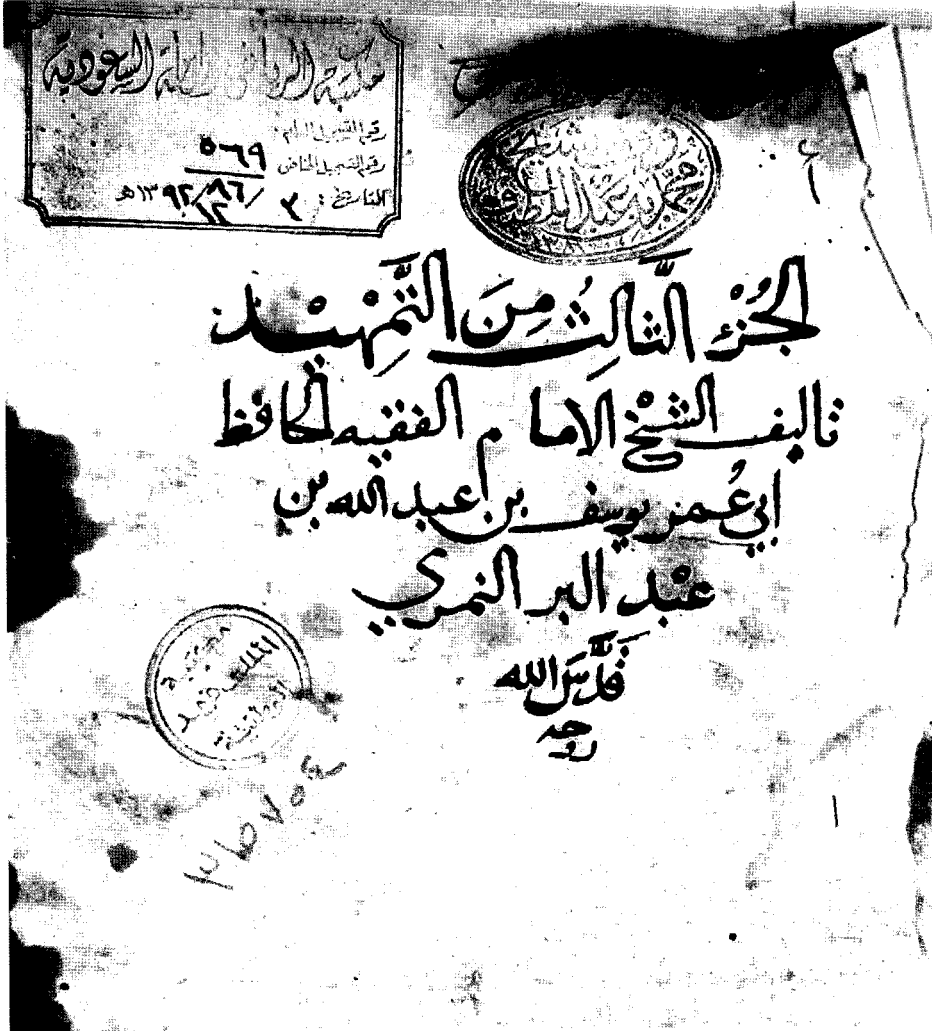 مكتبة الرياض السعودية
رقم التسجيل العام:
رقم التسجيل الخاص ٥٦٩
التاريخ: ٣ / ١٢ / ١٣٩٢هـ
محمد بن عبد اللطيف
الجُزْءُ الثَّالِثُ مِنَ التَّمْهِيْد
تاليف الشيْخ الامام الفقيه الحافظ
ابي عُمَر يوسف بن عبد الله بن
عبْد البر النمري
قَدَّسَ الله
روحه
مكتبة
الملك فهد
الوطنية